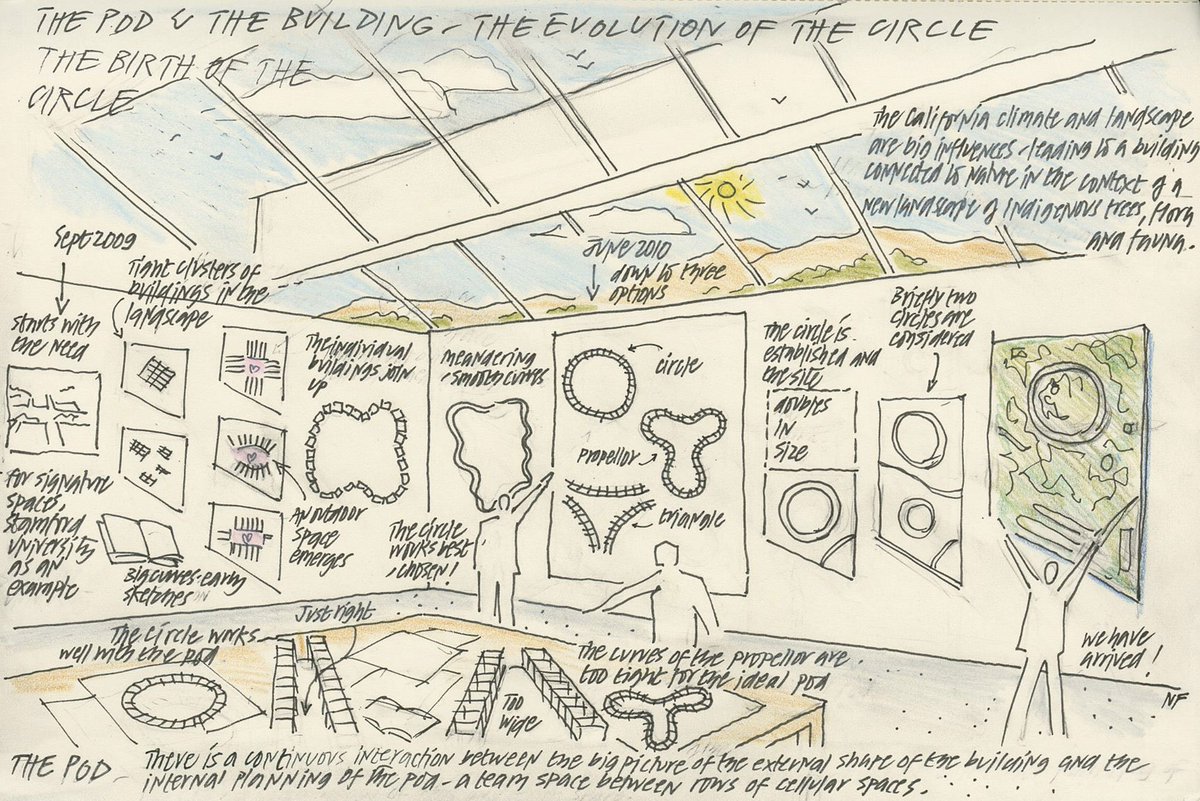 THE POD & THE BUILDING - THE EVOLUTION OF THE CIRCLE
THE BIRTH OF THE
CIRCLE
The California climate and landscape
are big influences - leading to a building
connected to nature in the context of a
new landscape of indigenous trees, flora
and fauna.
Sept 2009
starts with
the need
Tight clusters of
buildings in the
landscape
The individual
buildings join
up
meandering
- smooth curves
June 2010
down to three
options
circle
propellor
triangle
The circle is
established and
the site
doubles
IN
size
Briefly two
circles are
considered
for signature
spaces,
Stamford
University
as an
example
Big curves - early
sketches
An outdoor
space
emerges
The circle
works best,
chosen!
we have
arrived!
NF
The circle works
well with the pod
Just right
Too
wide
The curves of the propellor are
too tight for the ideal pod
THE POD - There is a continuous interaction between the big picture of the external share of the building and the
internal planning of the pod - a team space between rows of cellular spaces.